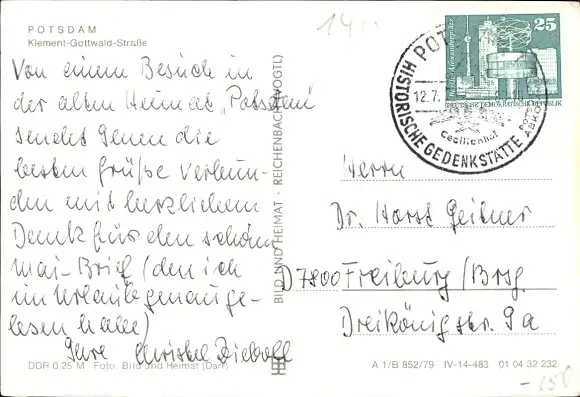 POTSDAM
Klement-Gottwald-Straße
Von einem Besuch in
der alten Heimat „Potsdam“
sendet Ihnen die
besten Grüße verbun-
den mit herzlichem
Dank für den schönen
Mai-Brief (den ich
im Urlaub genau ge-
lesen habe)
Ihre Christel
DDR 0,25 M Foto: Bild und Heimat (Darr)
BILD UND HEIMAT · REICHENBACH (VOGTL)
14
25
Berlin-Alexanderplatz
DEUTSCHE DEMOKRATISCHE REPUBLIK
POTSDAM
12.7.
HISTORISCHE GEDENKSTÄTTE
Cecilienhof
Herrn
Dr. Horst Geitner
D 7800 Freiburg/Brsg.
Dreikönigstr. 9a
A 1/B 852/79 IV-14-483 01 04 32 232